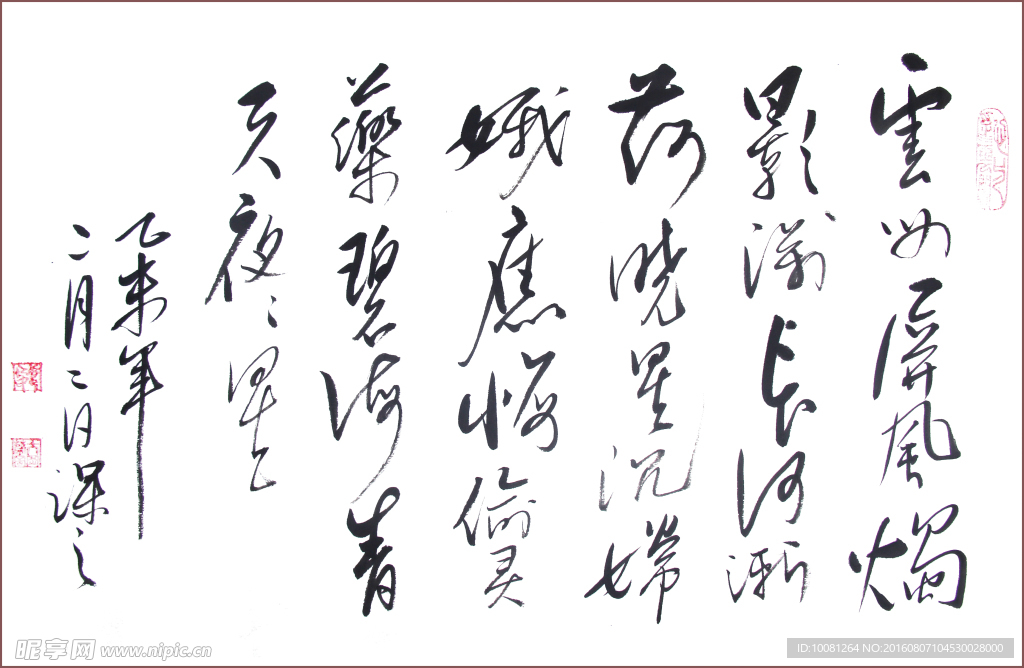 雲母屏風燭
影深長河漸
落曉星沉嫦
娥應悔偷靈
藥碧海青
天夜〻
乙未年
二月二日
昵享网 www.nipic.cn
ID:10081264 NO:20160807104530028000